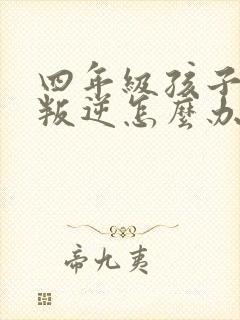 四年級孩子
叛逆怎麼办
帝九夷